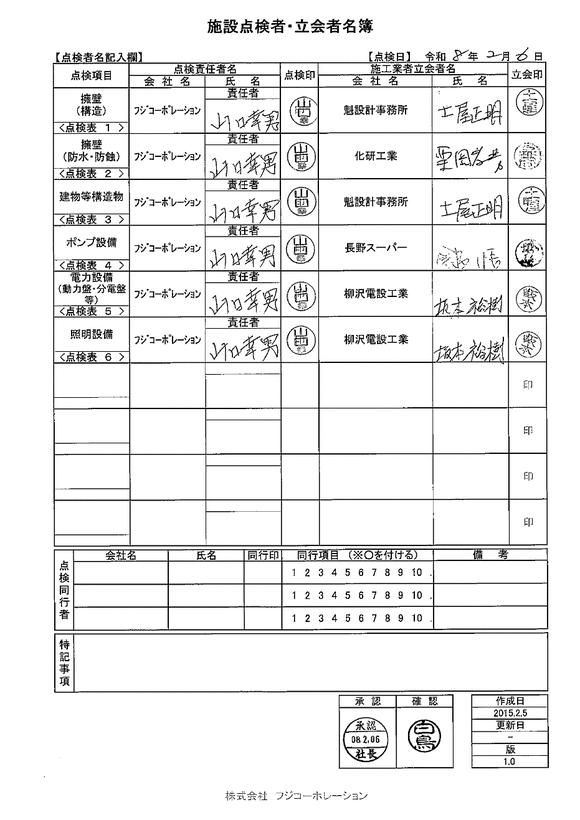 施設点検者・立会者名簿
【点検者名記入欄】 【点検日】 令和 8 年 2 月 6 日
点検項目 点検責任者名 点検印 施工業者立会者名 立会印
会社名 氏名 会社名 氏名
擁壁
(構造)
<点検表 1 >
フジコーポレーション 責任者 山口幸男 魁設計事務所 土屋正明
擁壁
(防水・防蝕)
<点検表 2 >
フジコーポレーション 責任者 山口幸男 化研工業
建物等構造物
<点検表 3 >
フジコーポレーション 責任者 山口幸男 魁設計事務所 土屋正明
ポンプ設備
<点検表 4 >
フジコーポレーション 責任者 山口幸男 長野スーパー
電力設備
(動力盤・分電盤
等)
<点検表 5 >
フジコーポレーション 責任者 山口幸男 柳沢電設工業 坂本裕樹
照明設備
<点検表 6 >
フジコーポレーション 責任者 山口幸男 柳沢電設工業 坂本裕樹
印
印
印
印
点検同行者
会社名 氏名 同行印 同行項目 (※〇を付ける) 備考
1 2 3 4 5 6 7 8 9 10 .
1 2 3 4 5 6 7 8 9 10 .
1 2 3 4 5 6 7 8 9 10 .
特記事項
承認 確認
承認
08.2.06
社長
白鳥
作成日
2015.2.5
更新日
-
版
1.0
株式会社 フジコーポレーション